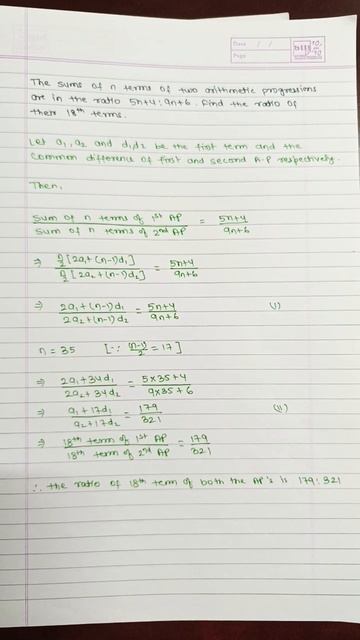 Date / /
Page
The sums of n terms of two arithmetic progressions
are in the ratio 5n+4 : 9n+6. Find the ratio of
their 18th terms.
Let a₁, a₂ and d₁, d₂ be the first term and the
common difference of first and second A.P respectively.
Then,
Sum of n terms of 1st AP / Sum of n terms of 2nd AP = 5n+4 / 9n+6
⇒ n/2 [2a₁+(n-1)d₁] / n/2 [2a₂+(n-1)d₂] = 5n+4 / 9n+6
⇒ 2a₁+(n-1)d₁ / 2a₂+(n-1)d₂ = 5n+4 / 9n+6 (1)
n = 35 [∵ (n-1)/2 = 17]
⇒ 2a₁+34d₁ / 2a₂+34d₂ = 5×35+4 / 9×35+6
⇒ a₁+17d₁ / a₂+17d₂ = 179 / 321 (11)
⇒ 18th term of 1st AP / 18th term of 2nd AP = 179 / 321
∴ the ratio of 18th term of both the AP's is 179:321